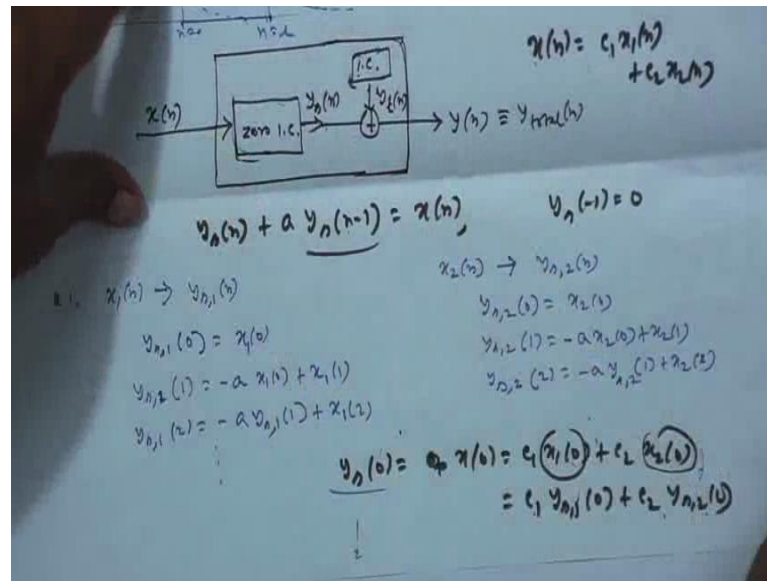 n=0
x(n) = c₁x₁(n)
+ c₂x₂(n)
i.c.
x(n)
zero i.c.
yₛ(n)
y_t(n)
+
y(n) ≡ y_total(n)
yₛ(n) + a yₛ(n-1) = x(n), yₛ(-1) = 0
x₁(n) → yₛ,₁(n)
yₛ,₁(0) = x₁(0)
yₛ,₂(1) = -a x₁(0) + x₁(1)
yₛ,₁(2) = -a yₛ,₁(1) + x₁(2)
x₂(n) → yₛ,₂(n)
yₛ,₂(0) = x₂(0)
yₛ,₂(1) = -a x₂(0) + x₂(1)
yₛ,₂(2) = -a yₛ,₂(1) + x₂(2)
yₛ(0) = x(0) = c₁ x₁(0) + c₂ x₂(0)
= c₁ yₛ,₁(0) + c₂ yₛ,₂(0)